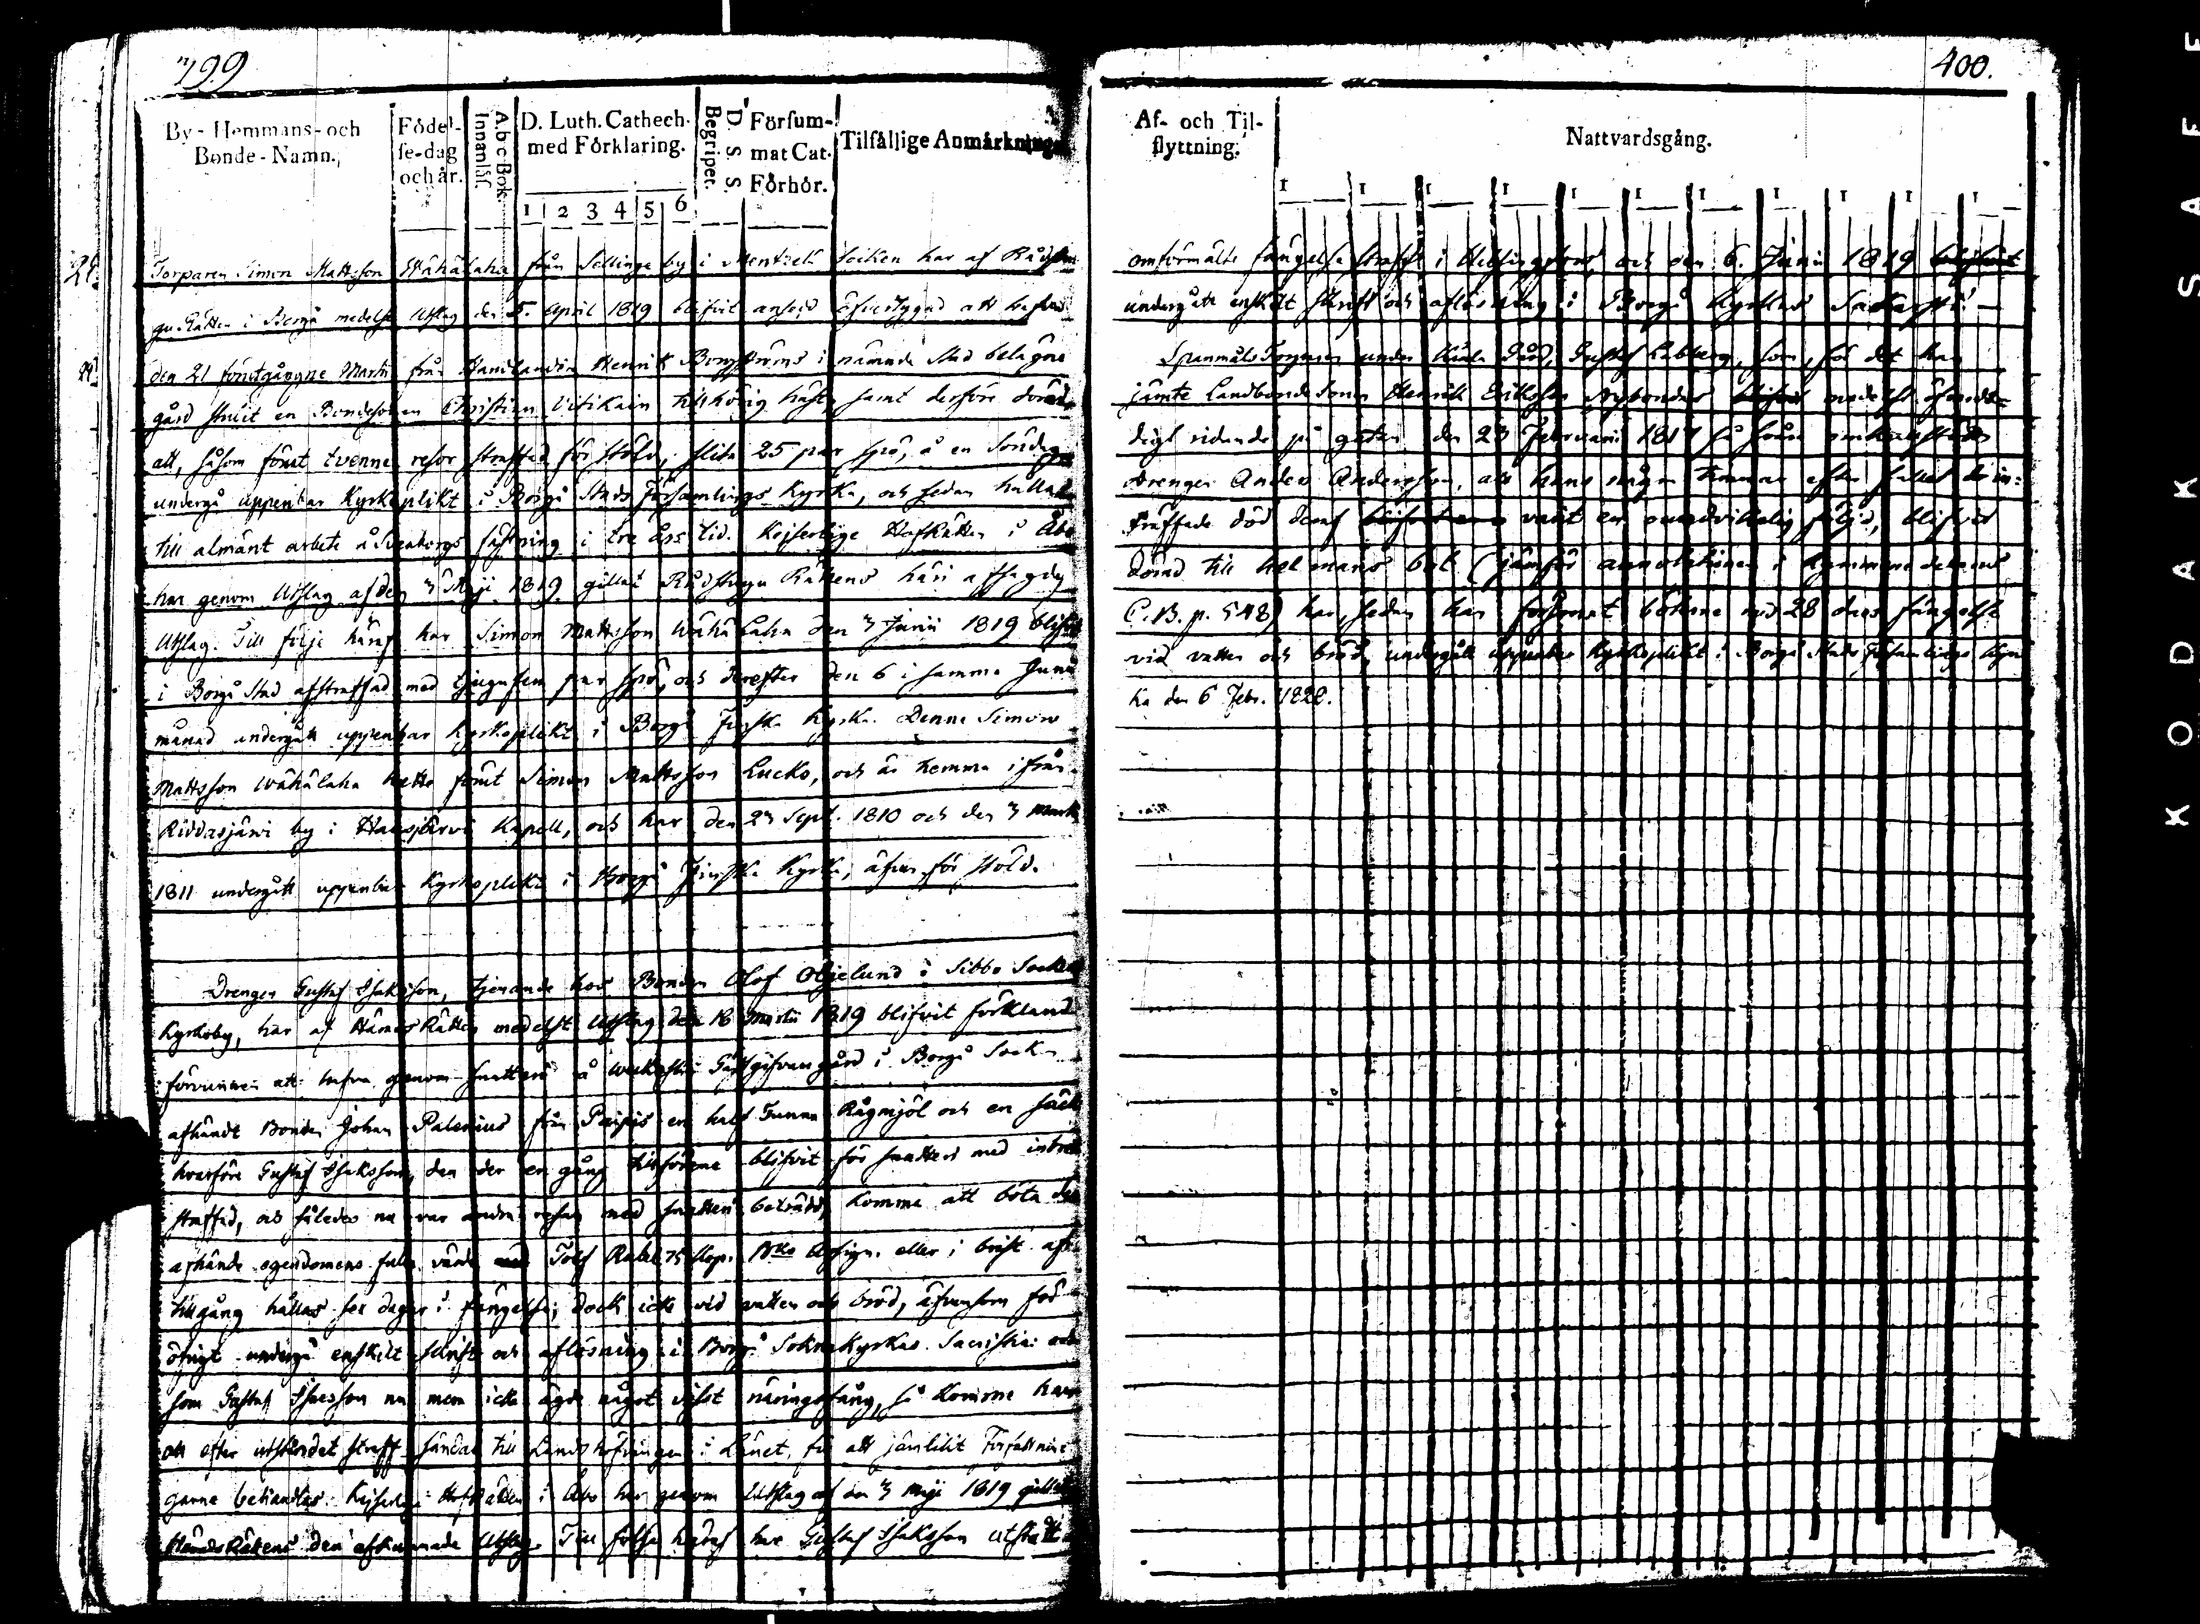 399
By- Hemmans- och Bonde-Namn.
Födelse-dag och år.
A b c Bok. Innanläs.
D. Luth. Cathech. med Förklaring.
1 2 3 4 5 6
D. S. S. Begriper.
Försummat Cat. Förhör.
Tilfällige Anmärkningar
Torparen Simon Mattsson Wähälaha från Sillinge by i Mentzelä Socken har af Rådstu
gu Rätten i Borgå medelst Utslag den 5. April 1819 blifvit ansedd öfvertygad att hafva
den 21 förutgångne Martii från Handlanden Henrik Borgströms i nämnde Stad belägne
gård stulit en Bondesonen Christian Uitikain tillhörig häst, samt derföre dömd
att, såsom förut tvenne resor straffad för stöld, slita 25 par spö, å en Söndag
undergå uppenbar Kyrkoplikt i Borgå Stads Församlings Kyrka, och sedan hållas
till almänt arbete å Sveaborgs fästning i tre års tid. Kejserlige HofRätten i Åbo
har genom Utslag af den 3 Maji 1819 gillat Rådstugu Rättens häri afsagde
Utslag. Till följe häraf har Simon Mattsson Wähälaha den 3 Junii 1819 blifvit
i Borgå Stad afstraffad med tjugufem par spö, och derefter den 6 i samma Junii
månad undergått uppenbar Kyrkoplikt i Borgå Finska Kyrka. Denne Simon
Mattsson Wähälaha hette förut Simon Mattsson Lucko, och är hemma ifrån
Riddasjärvi by i Hausjärvi Kapell, och har den 23 Sept. 1810 och den 3 Martii
1811 undergått uppenbar Kyrkoplikt i Borgå Finska Kyrka, äfven för stöld.
Drengen Gustaf Isaksson, tjenande hos Bonden Olof Oljelund i Sibbo Sockens
Kyrkoby, har af HäradsRätten medelst Utslag den 16 Martii 1819 blifvit förklarad
förvunnen att hafva genom snatteri å Gästgifvaregård i Borgå Socken
afhändt Bonden Johan Palenius från Paipis en half Tunna Rågmjöl och en säck
hvarföre Gustaf Isaksson, den der en gång tillförene blifvit för snatteri med
straffad, och således nu var andra resan med snatteri beträdd, komme att böta den
afhände egendomens fulla värde med Tolf Rubel 75 Kop. Bko Assign. eller i brist af
tillgång hållas sex dagar i fängelse, dock icke vid vatten och bröd, äfvensom för
öfrigt undergå enskilt skrift och aflösning i Borgå Soknekyrkas Sacristia: och
som Gustaf Isacsson nu mera icke ägde något visst näringsfång, så komme han
att efter utståndet straff sändas till Landshöfdingen i Länet, för att jämlikt Författnin:
garne behandlas. Kejserlige HofRätten i Åbo har genom Utslag af den 3 Maji 1819 gillat
HäradsRättens den afkunnade Utslag. Till följe häraf har Gustaf Isaksson utstått
400.
Af- och Tilflyttning.
Nattvardsgång.
1 1 1 1 1 1 1 1 1 1 1
omförmälte fängelse straff i Helsingfors, och den 6. Junii 1819
undergått enskilt skrift och aflösning i Borgå Kyrkas Sacristi.
under Gård, Gustaf, som, för det han
jämte Landbonde Sonen Henrik Eriksson Nybondas medelst
ligt ridande på gatan den 23 Februarii 1817 så
drengen Anders Andersson, att hans några timmar efter fallet in:
träffade död deraf varit en oundvikelig följd, blifvit
dömd till half mans bot (jämför annotationen i
C. B. p. 548) har, sedan han försonat böterne med 28 dars fängelse
vid vatten och bröd, undergått uppenbar Kyrkoplikt i Borgå Stads Församlings Kyr
ka den 6 Febr. 1820.
KODAK SAFE